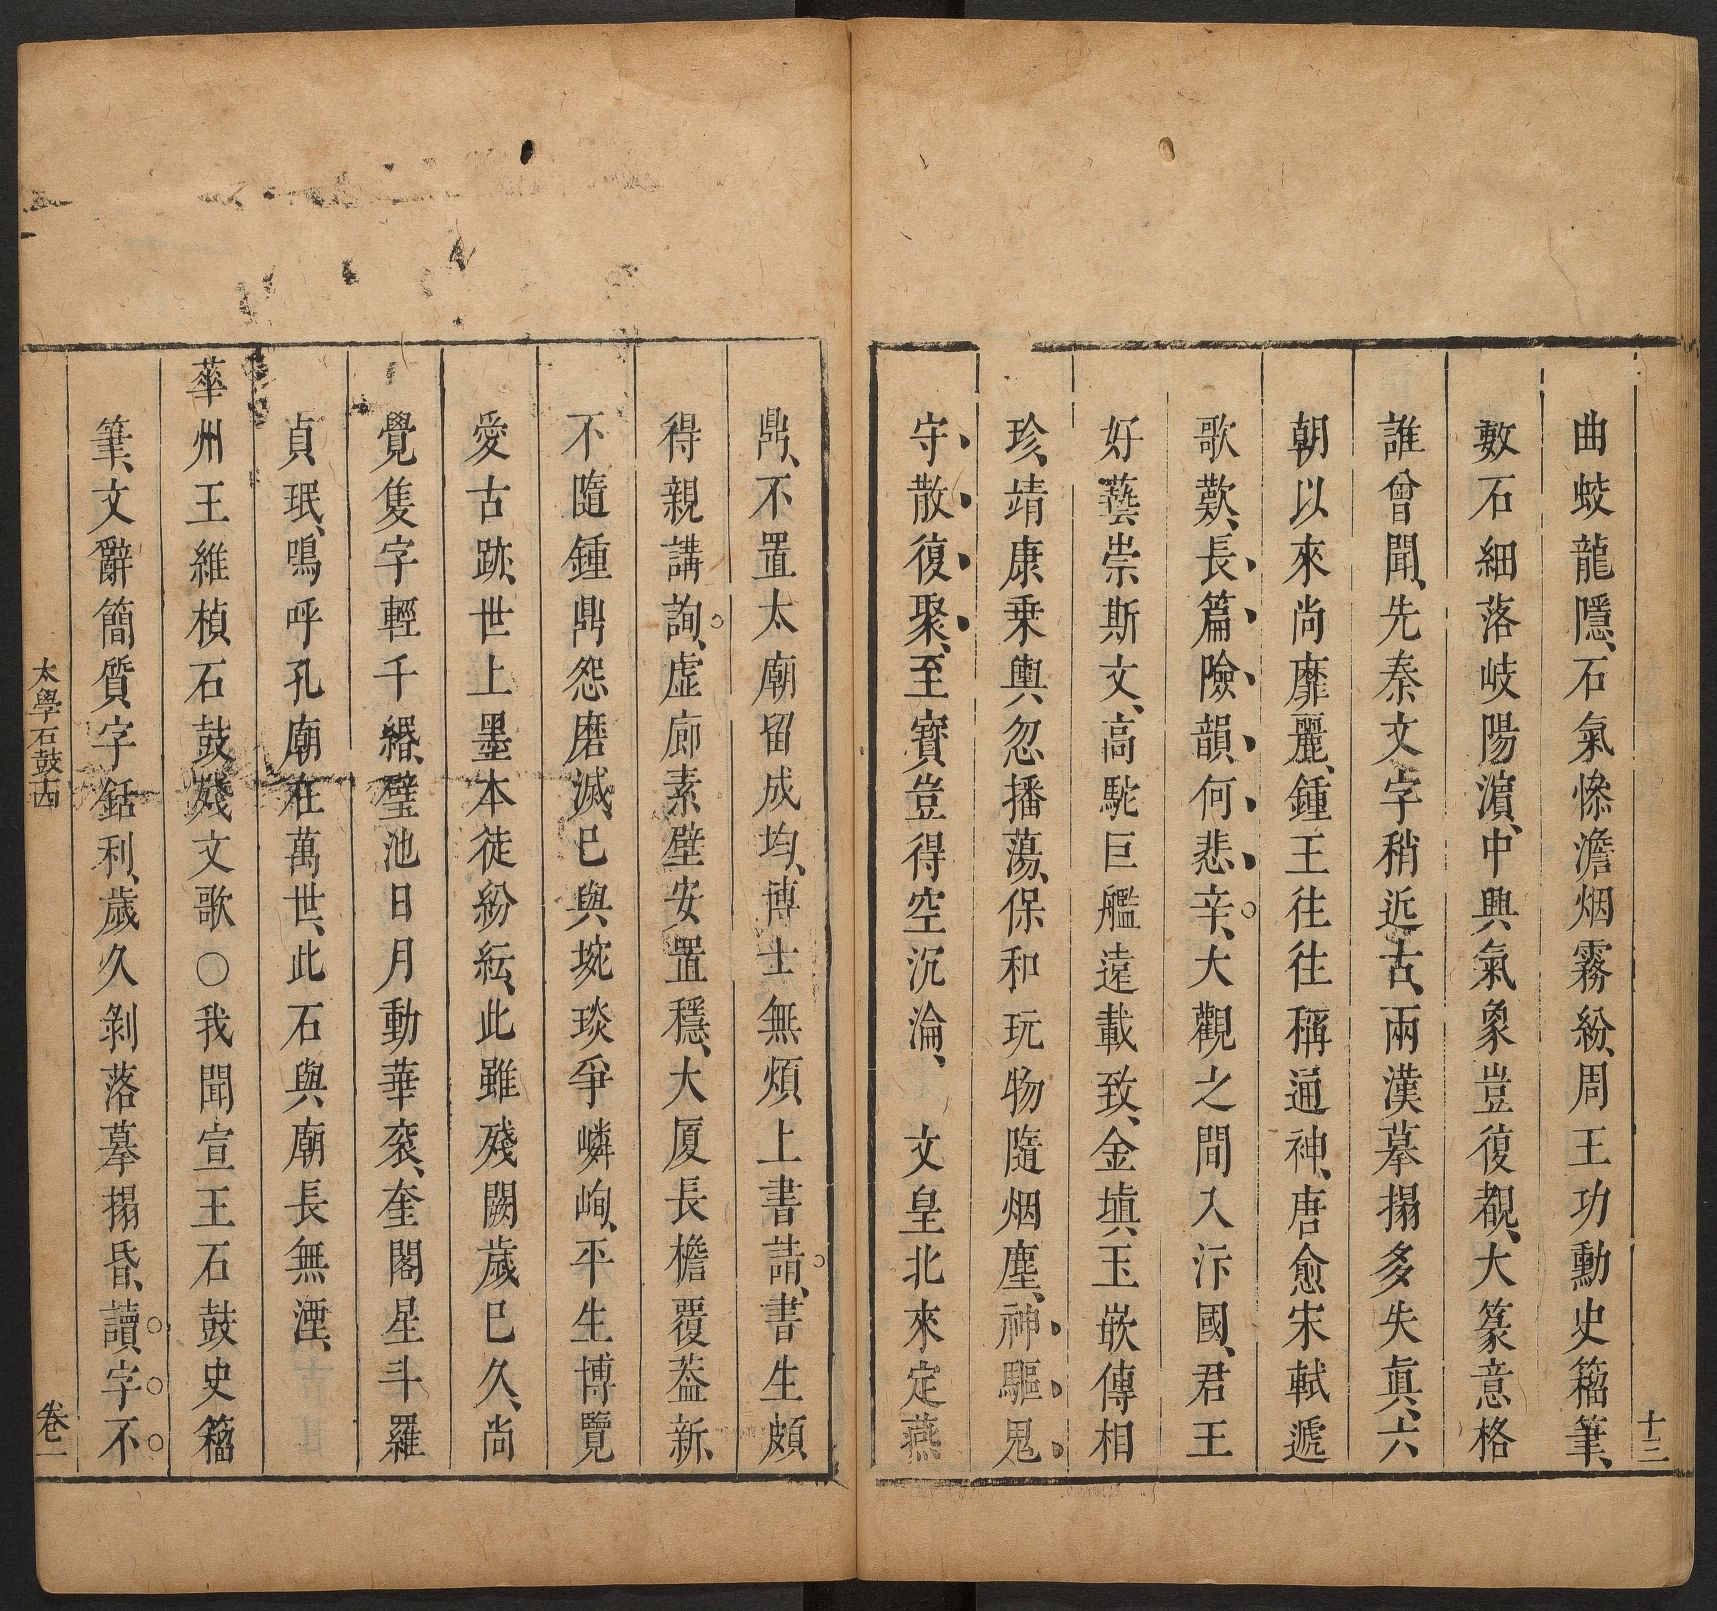 十三
曲蛟龍隱、石氣慘澹烟霧紛、周王功勳史籀筆、
數石細落岐陽濵、中興氣象豈復覩、大篆意格
誰曾聞、先秦文字稍近古、兩漢摹搨多失眞、六
朝以來尚靡麗、鍾王往往稱通神、唐愈宋軾遞
歌歎、長篇險韻何悲辛、大觀之間入汴國、君王
好藝崇斯文、高駝巨艦遠載致、金塡玉嵌傳相
珍、靖康乗輿忽播蕩、保和玩物隨烟塵、神驅鬼
守散復聚、至寳豈得空沉淪、 文皇北來定燕
鼎、不置太廟留成均、博士無煩上書請、書生頗
得親講詢、虛廊素壁安置穩、大厦長檐覆葢新、
不隨鍾鼎怨磨滅、已與琬琰爭嶙峋、平生博覽
愛古跡、世上墨本徒紛紜、此雖殘闕歲已久、尚
覺隻字輕千緡、璧池日月動華衮、奎閣星斗羅
貞珉、嗚呼孔廟在萬世、此石與廟長無湮、
華州王維楨石鼓殘文歌○我聞宣王石鼓史籀
筆、文辭簡質字銛利、歲久剝落摹搨昏、讀字不
太學石鼓古
卷一